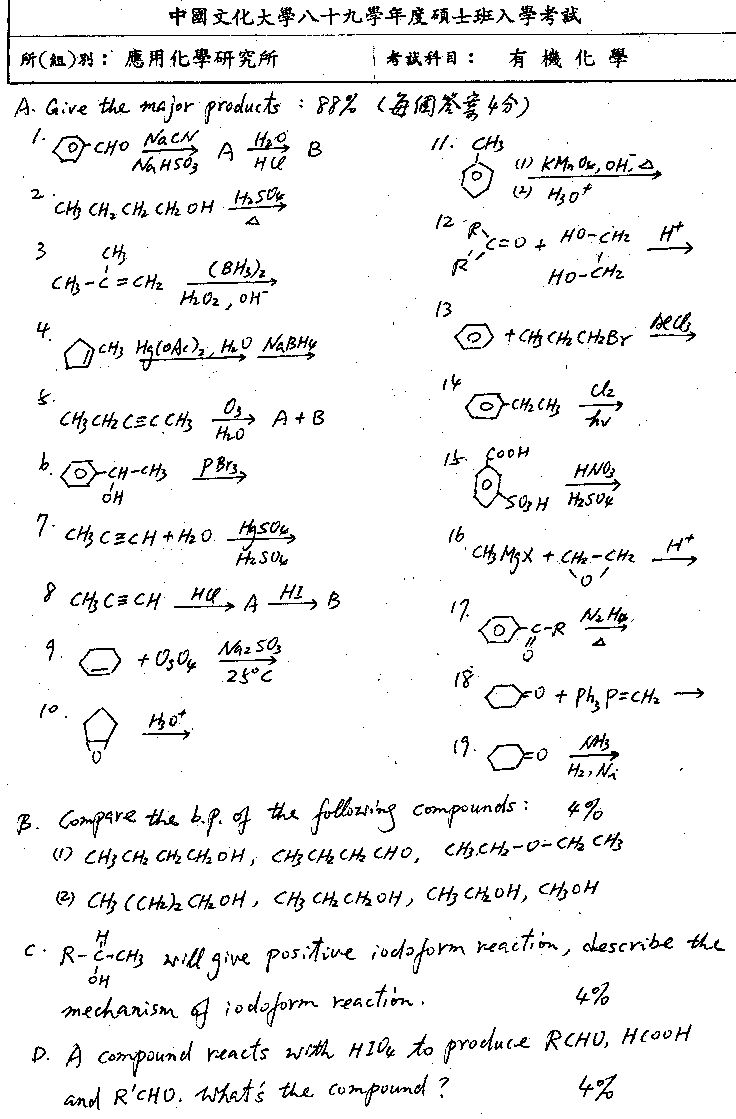 中國文化大學八十九學年度碩士班入學考試
所(組)別：應用化學研究所 考試科目：有機化學
A. Give the major products : 88% (每個答案4分)
1. CHO NaCN NaHSO3 A H2O HCl B
2. CH3CH2CH2CH2OH H2SO4 △
3 CH3-C=CH2 CH3 (BH3)2 H2O2, OH-
4. CH3 Hg(OAc)2, H2O NaBH4
5. CH3CH2C≡CCH3 O3 H2O A + B
6. CH-CH3 OH PBr3
7. CH3C≡CH + H2O HgSO4 H2SO4
8 CH3C≡CH HCl A HI B
9. + OsO4 Na2SO3 25°C
10. O H3O+
11. CH3 (1) KMnO4, OH-, △ (2) H3O+
12 R R' C=O + HO-CH2 HO-CH2 H+
13 + CH3CH2CH2Br AlCl3
14 CH2CH3 Cl2 hν
15. COOH SO3H HNO3 H2SO4
16 CH3MgX + CH2-CH2 O H+
17. C-R O N2H4 △
18 =O + Ph3P=CH2
19. =O NH3 H2, Ni
B. Compare the b.p. of the following compounds : 4%
(1) CH3CH2CH2CH2OH, CH3CH2CH2CHO, CH3CH2-O-CH2CH3
(2) CH3(CH2)2CH2OH, CH3CH2CH2OH, CH3CH2OH, CH3OH
C. R-C-CH3 H OH will give positive iodoform reaction, describe the
mechanism of iodoform reaction. 4%
D. A compound reacts with HIO4 to produce RCHO, HCOOH
and R'CHO. What's the compound ? 4%